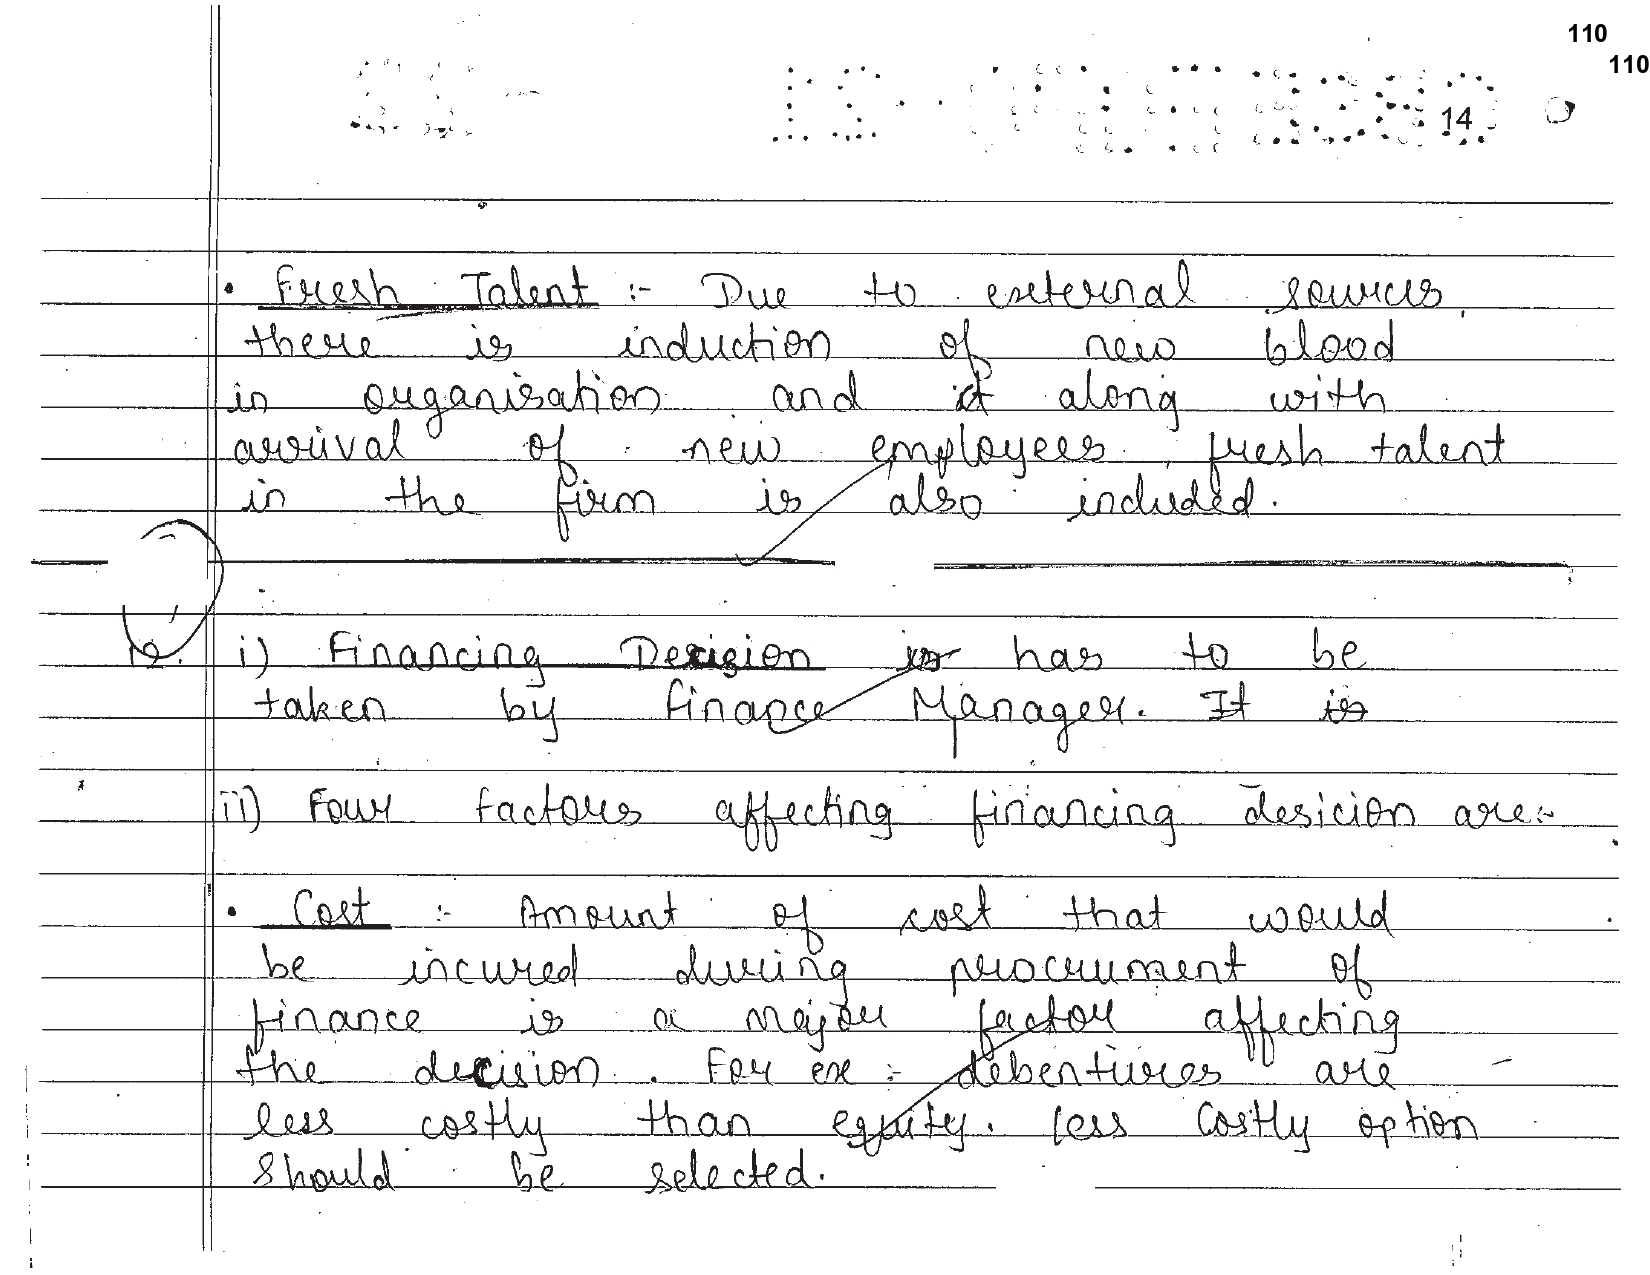 110
110
14
• Fresh Talent :- Due to external sources,
there is induction of new blood
in organisation and it along with
arrival of new employees, fresh talent
in the firm is also included.
i) Financing Decision is has to be
taken by finance Manager. It is
ii) Four factors affecting financing desicion are:-
• Cost :- Amount of cost that would
be incured during procrument of
finance is a major factor affecting
the decision. For ex :- debentures are
less costly than equity. Less Costly option
should be selected.